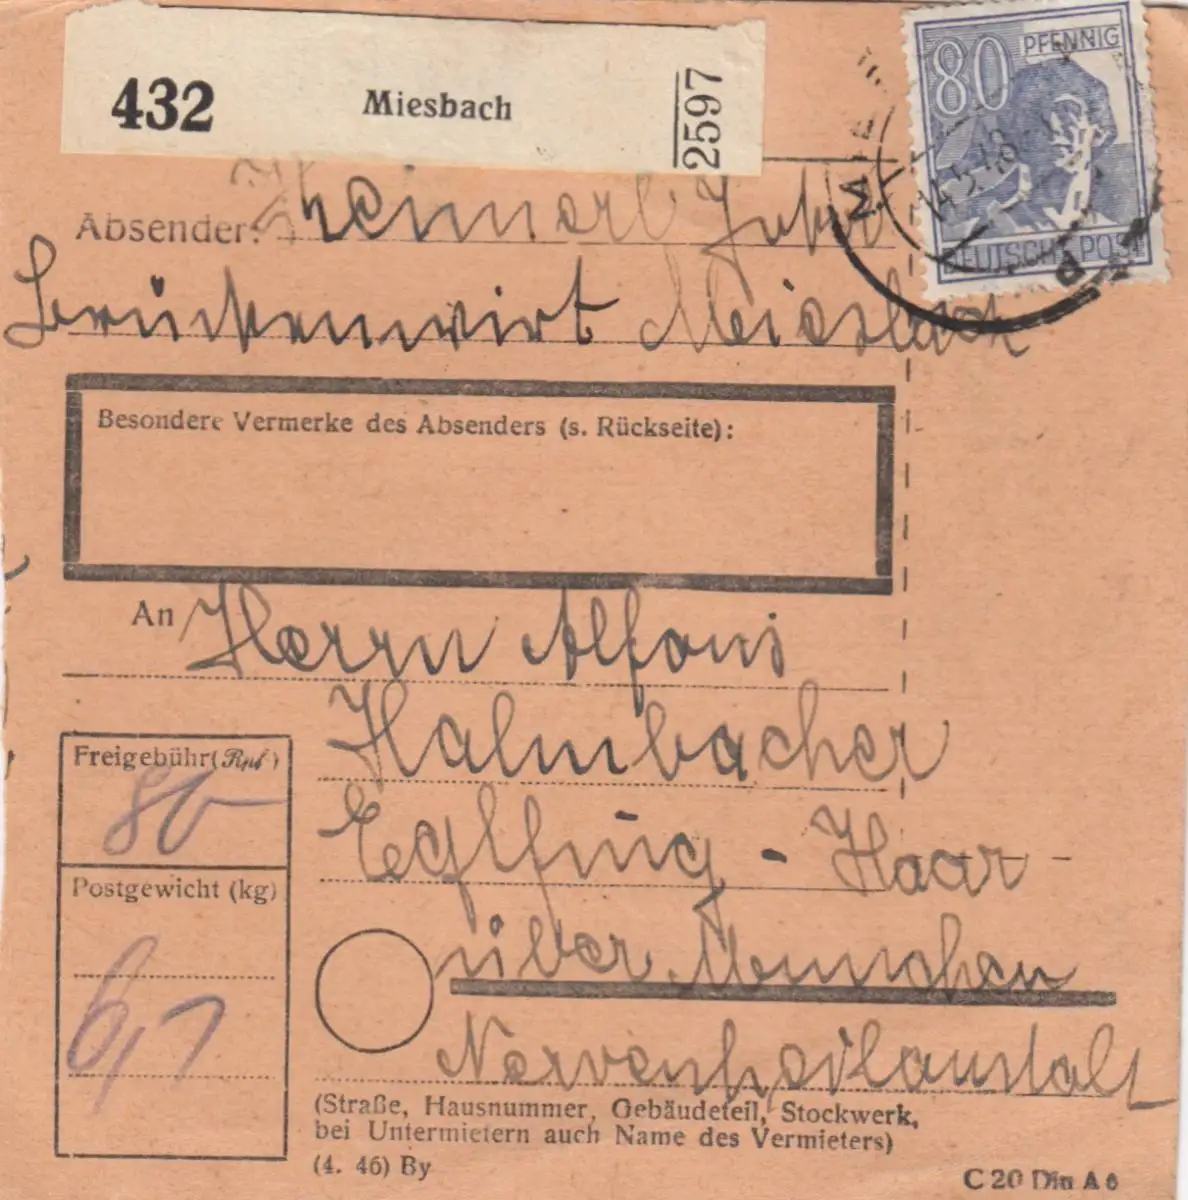 432 Miesbach 2597
80 PFENNIG
DEUTSCHE POST
Absender:
Brückenwirt Miesbach
Besondere Vermerke des Absenders (s. Rückseite):
An Herrn Alfons
Halmbacher
Eglfing - Haar
über Munchen
Nervenheilanstalt
Freigebühr (Rpf)
80
Postgewicht (kg)
(Straße, Hausnummer, Gebäudeteil, Stockwerk,
bei Untermietern auch Name des Vermieters)
(4. 46) By
C 20 Din A 6